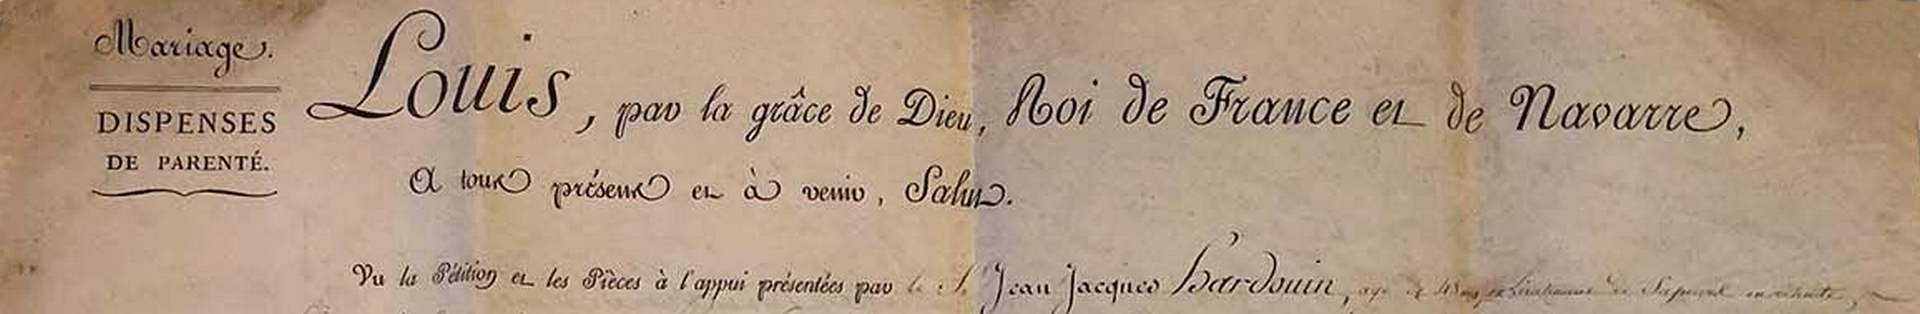 Mariage.
DISPENSES
DE PARENTÉ.
Louis, par la grâce de Dieu, Roi de France et de Navarre,
A tous présens et à venir, Salut.
Vu la Pétition et les Pièces à l'appui présentées par le S. Jean Jacques Hardouin, agé de en retraite,